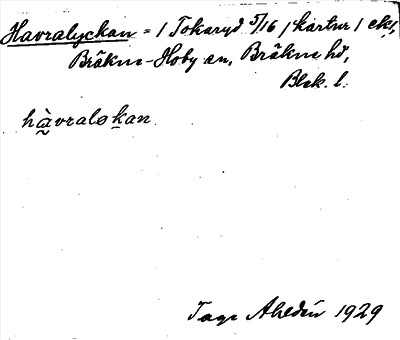 Havralyckan = / Tokaryd 5/16 / kartnr / eks,
Bräkne-Hoby sn, Bräkne hd,
Blek. l.
hàvralokan
Tage Ahldén 1929